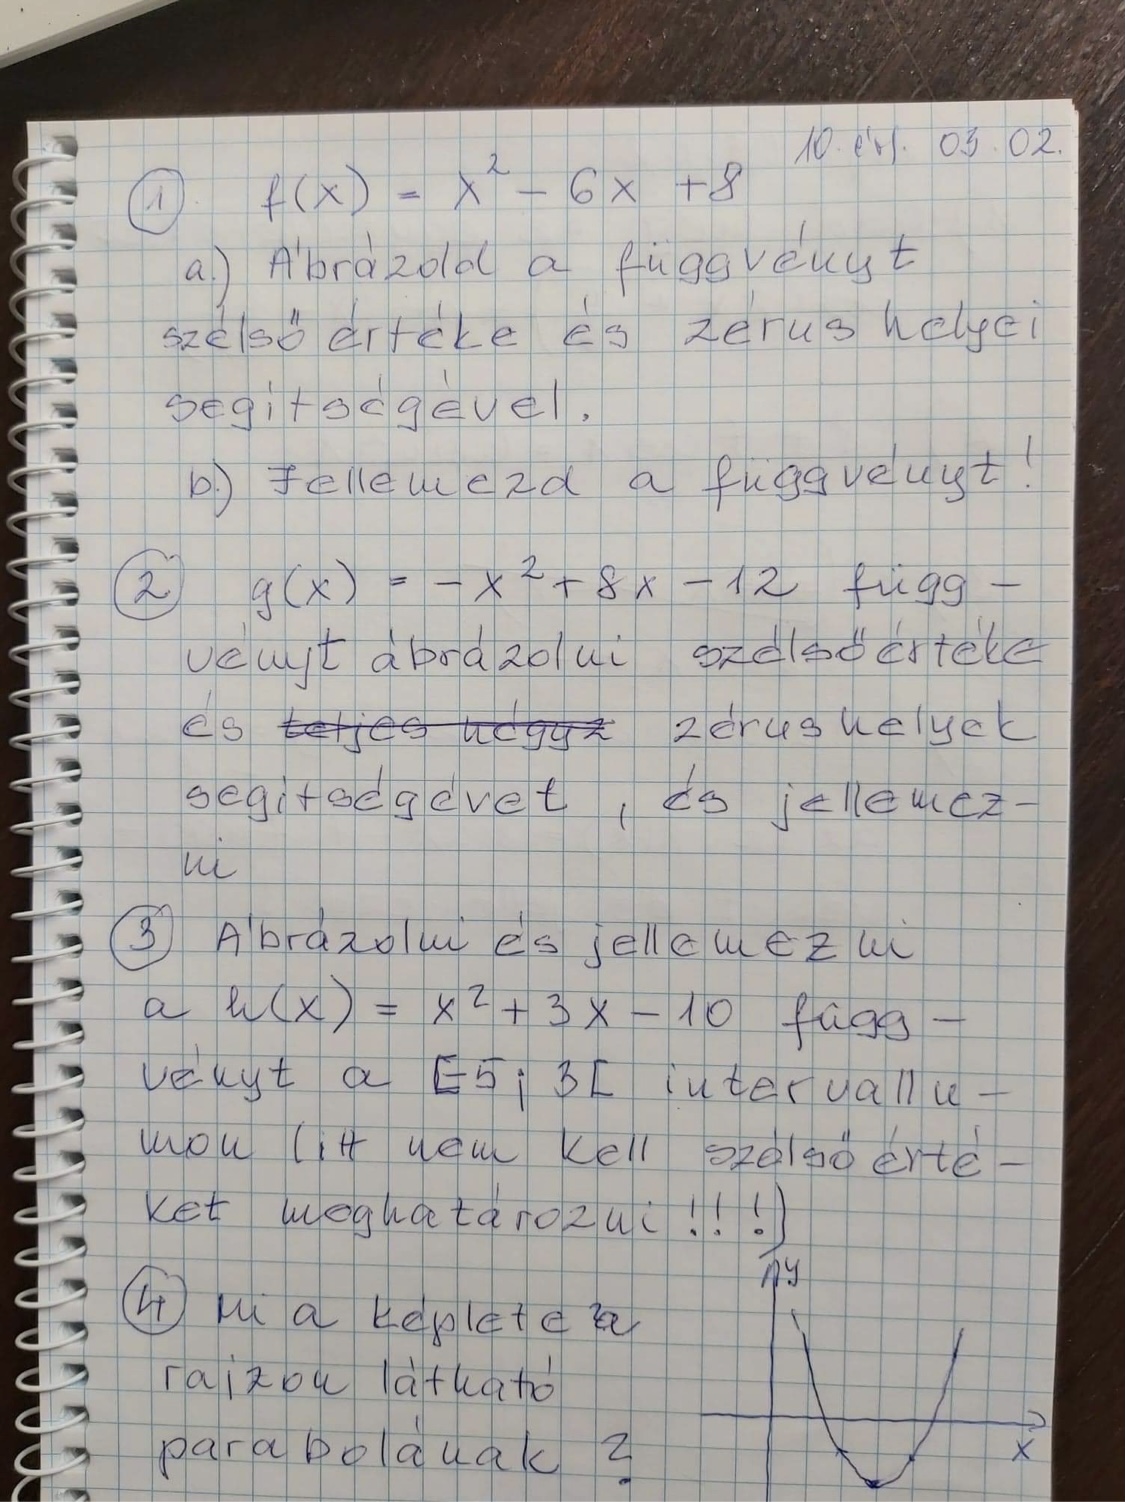 10. évf. 03.02.
① f(x) = x² - 6x + 8
a.) Ábrázold a függvényt
szélsőértéke és zérushelyei
segítségével.
b.) Jellemezd a függvényt!
② g(x) = -x² + 8x - 12 függ-
vényt ábrázolni szélsőértéke
és teljes négyz zérushelyek
segítségével, és jellemez-
ni
③ Ábrázolni és jellemezni
a h(x) = x² + 3x - 10 függ-
vényt a [-5; 3[ intervallu-
mon (itt nem kell szélsőérté-
ket meghatározni!!!)
y
④ Mi a képlete a
rajzon látható
parabolának?
x